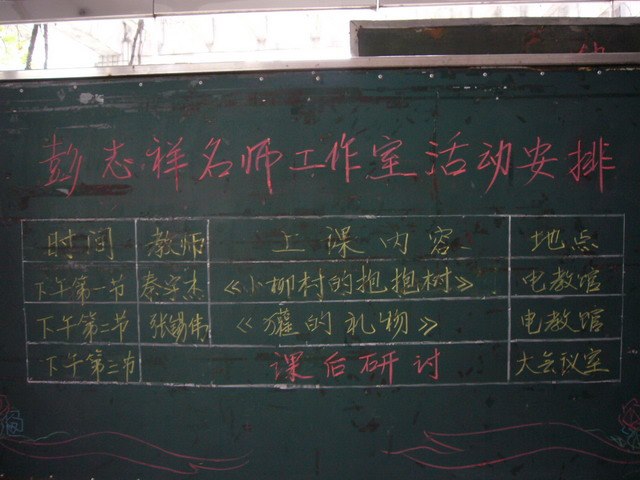 彭志祥名师工作室活动安排
时间 教师 上课内容 地点
下午第一节 秦宇杰 《小柳村的抱抱树》 电教馆
下午第二节 张锡伟 《獾的礼物》 电教馆
下午第三节 课后研讨 大会议室